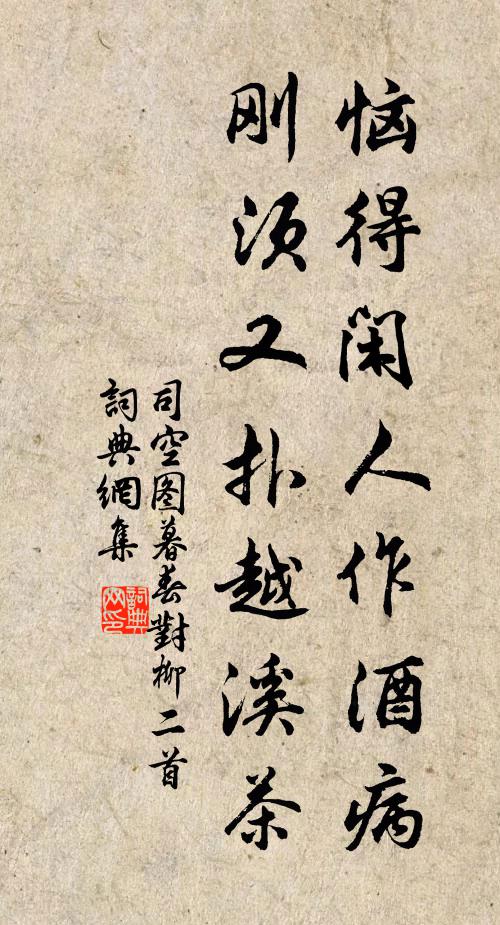 恼得闲人作酒病
刚须又扑越溪茶
司空图暮春對柳二首
詞典網集
詞典网印